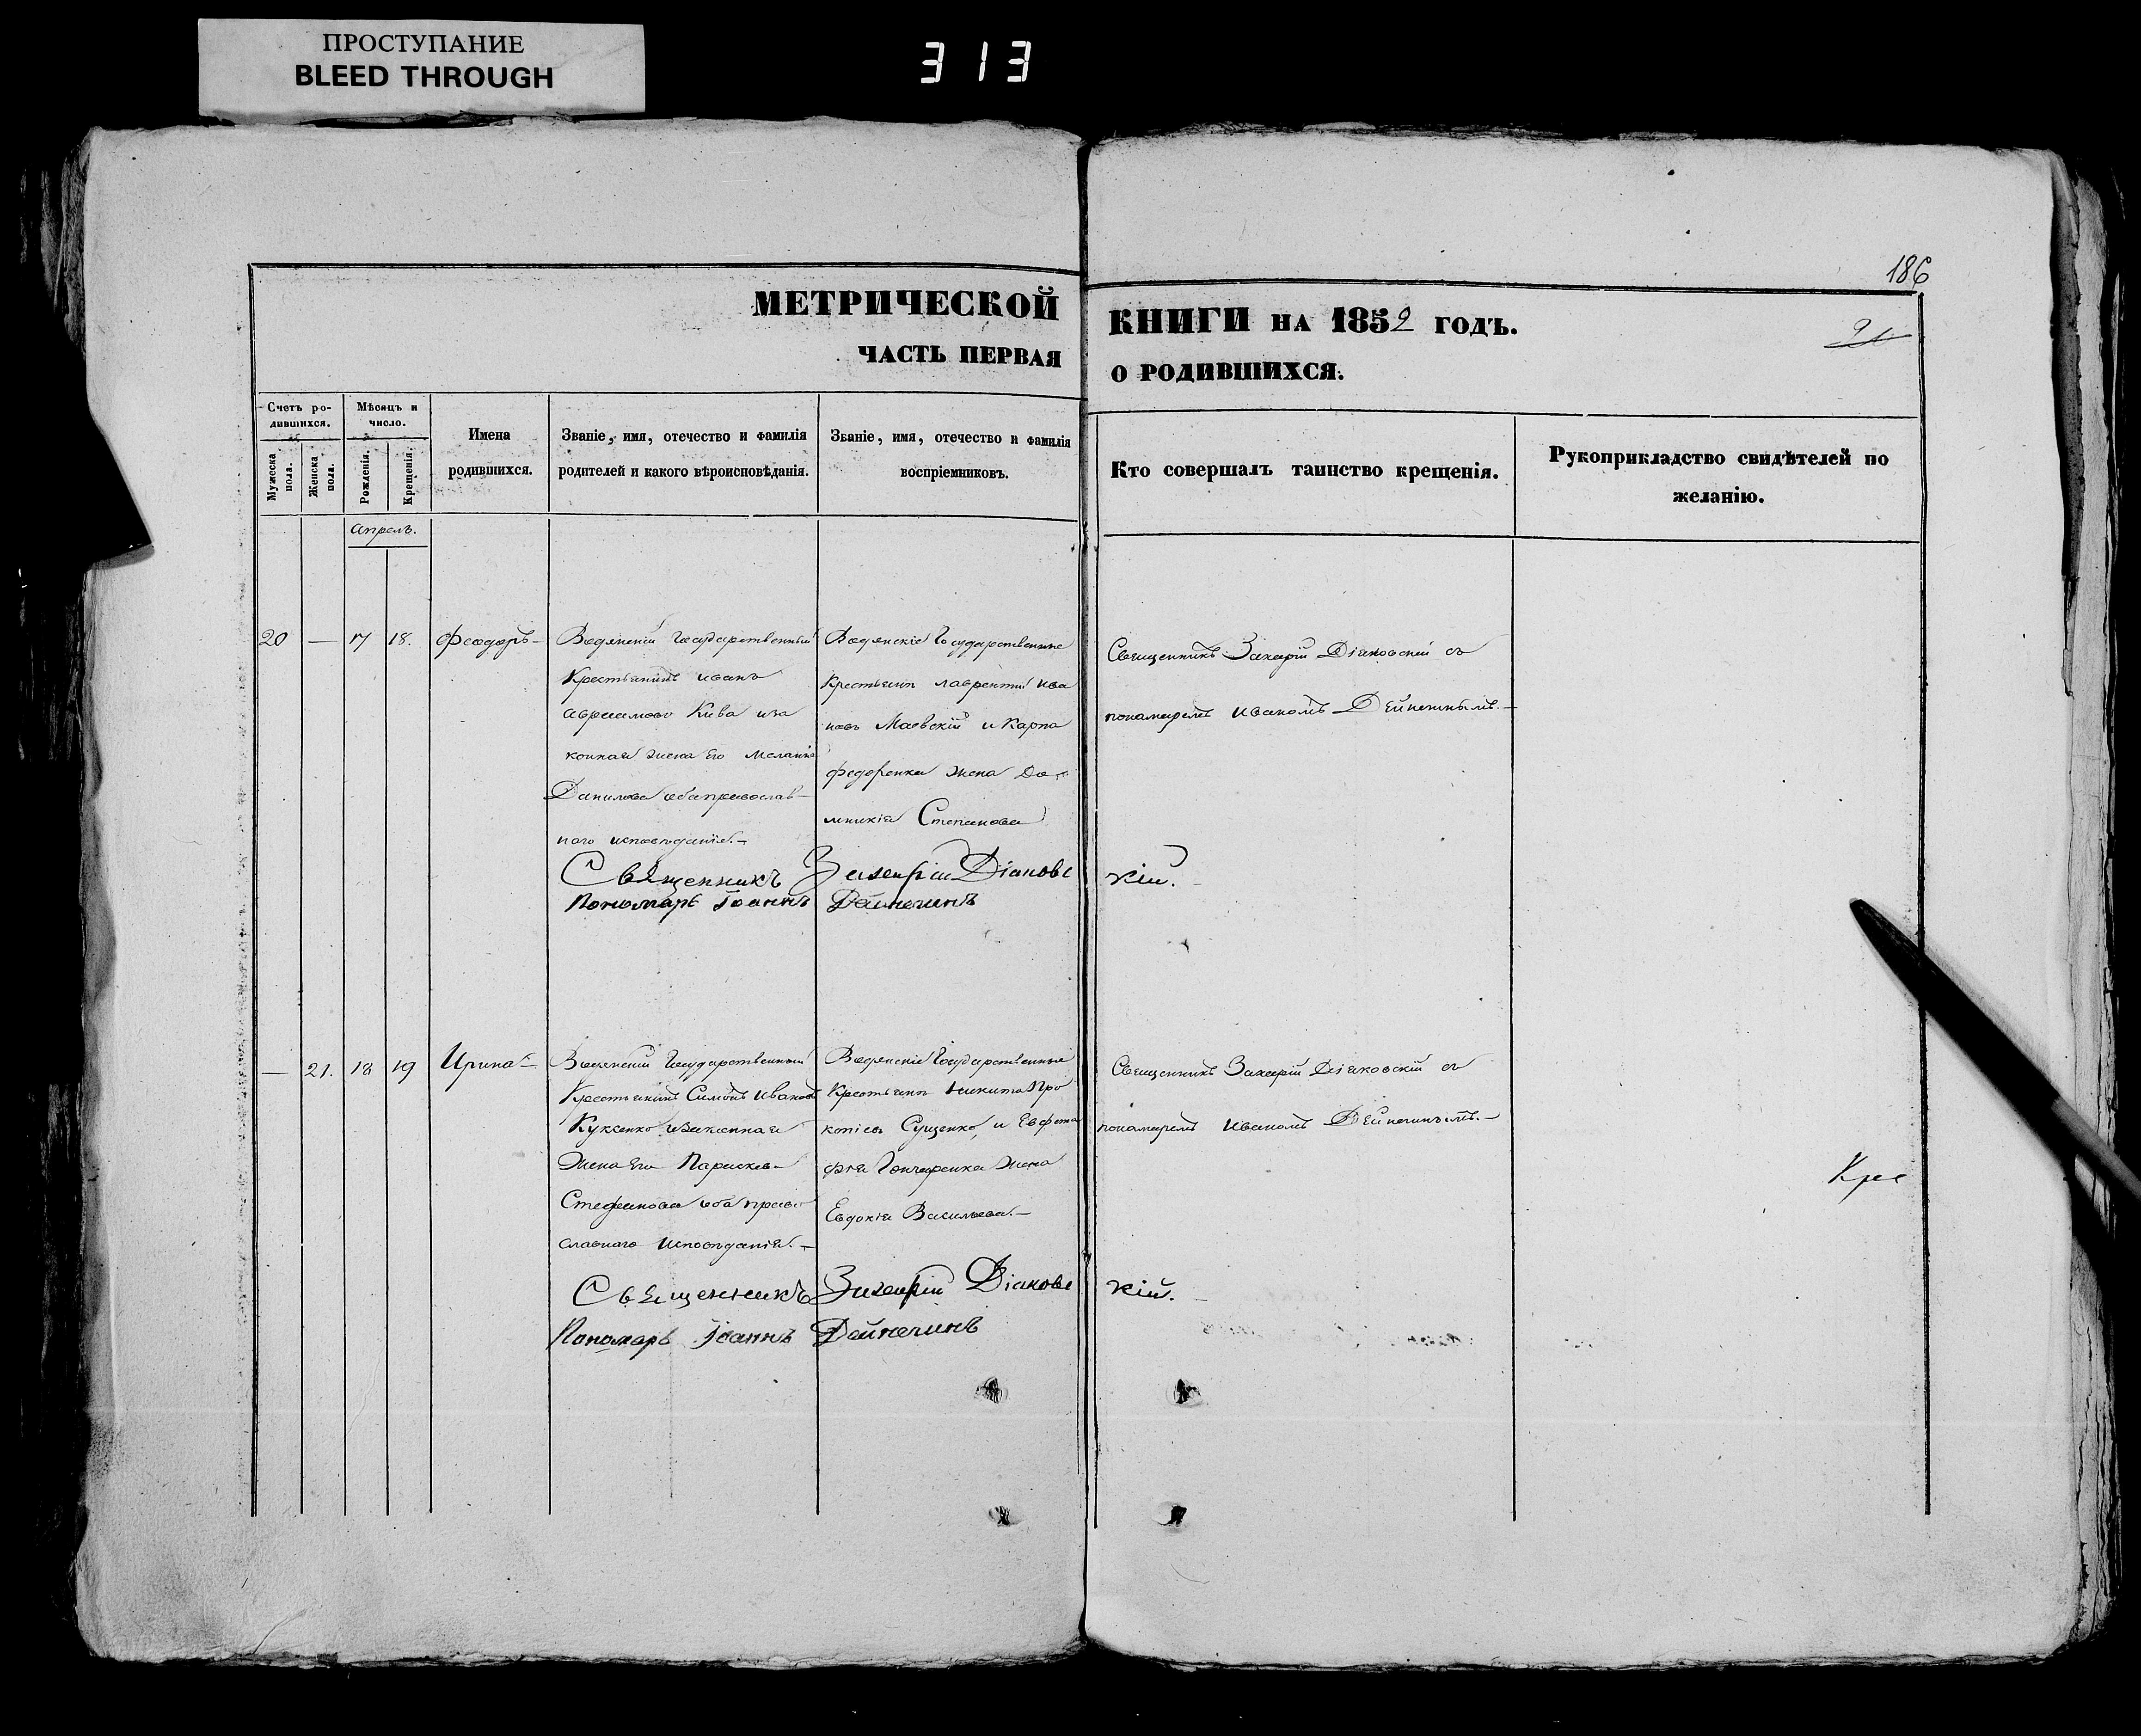 ПРОСТУПАНИЕ
BLEED THROUGH
313
186
МЕТРИЧЕСКОЙ
КНИГИ НА 1852 ГОДЪ.
21
ЧАСТЬ ПЕРВАЯ
О РОДИВШИХСЯ.
Счетъ ро-
дившихся.
Мужеска
пола.
Женска
пола.
Мѣсяцъ и
число.
Рожденія.
Крещенія.
Имена
родившихся.
Званіе, имя, отечество и фамилія
родителей и какого вѣроисповѣданія.
Званіе, имя, отечество и фамилія
воспріемниковъ.
Кто совершалъ таинство крещенія.
Рукоприкладство свидѣтелей по
желанію.
Апрель.
20 — 17 18. Феодоръ —
Водянскій Государственный
Крестьянинъ Иванъ
Авраамовъ Кива и за
конная жена Его Меланія
Данилова оба православ-
ного исповѣданія. —
Водянскіе Государственные
Крестьяне Лаврентій Ива
новъ Маевскій и Карпа
Федоренка жена До-
мникія Степанова
Священникъ Захарій Діяковскій съ
понамаремъ Иваномъ Дейнекинымъ. —
Священникъ Захарій Діаковс
кій.
Пономарь Іоаннъ Дейнекинъ
— 21. 18 19 Ирина —
Водянскій Государственный
Крестьянинъ Симонъ Ивановъ
Куксенко и законная
жена Его Параскева
Стефанова оба право
славнаго исповѣданія. —
Водянскіе Государственные
Крестьяне Никита Про
копіевъ Сущенко, и
Гончаренка жена
Евдокія Васильева. —
Священникъ Захарій Діяковскій съ
понамаремъ Иваномъ Дейнекинымъ. —
Крес
Священникъ Захарій Діаковс
кій.
Пономарь Іоаннъ Дейнекинъ